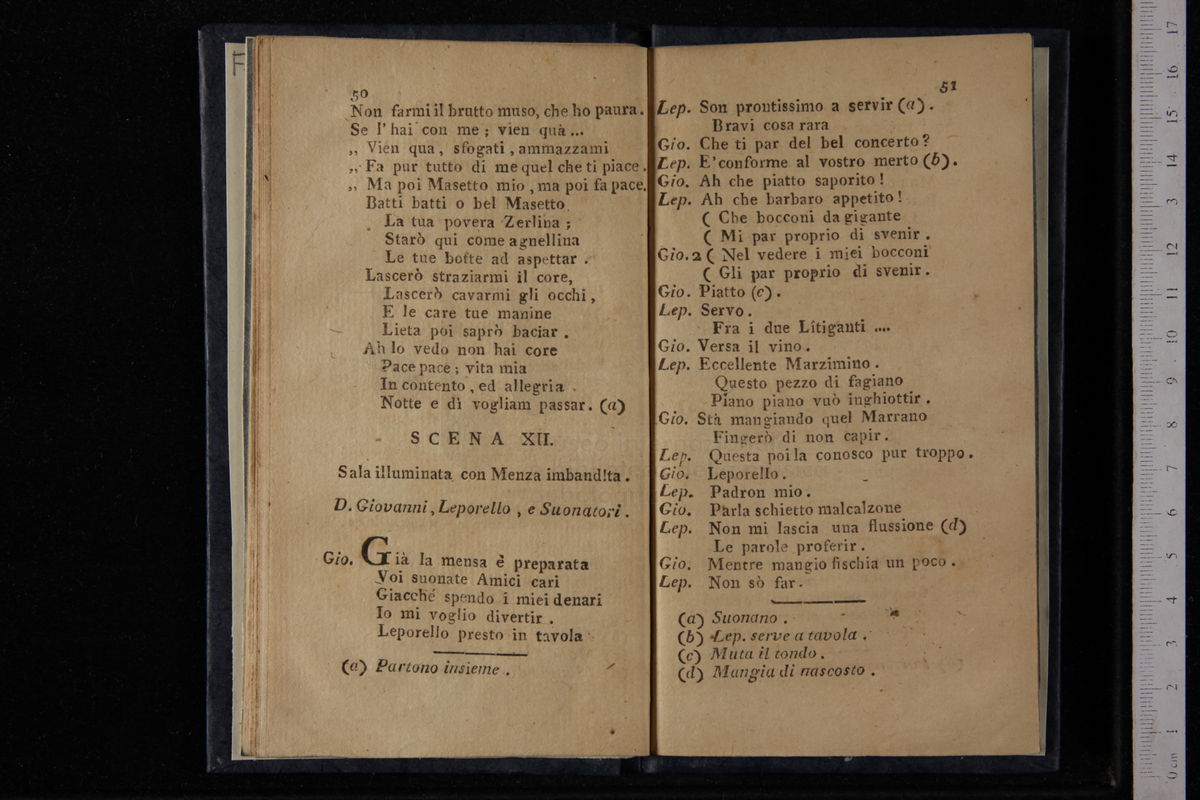 F
50
Non farmi il brutto muso, che ho paura.
Se l' hai con me ; vien quà ...
,, Vien qua , sfogati , ammazzami
,, Fa pur tutto di me quel che ti piace .
,, Ma poi Masetto mio , ma poi fa pace.
Batti batti o bel Masetto
La tua povera Zerlina ;
Starò qui come agnellina
Le tue botte ad aspettar .
Lascerò straziarmi il core,
Lascerò cavarmi gli occhi ,
E le care tue manine
Lieta poi saprò baciar .
Ah lo vedo non hai core
Pace pace ; vita mia
In contento , ed allegria
Notte e dì vogliam passar. (a)
SCENA XII.
Sala illuminata con Menza imbandita .
D. Giovanni , Leporello , e Suonatori .
Gio. Già la mensa è preparata
Voi suonate Amici cari
Giacché spendo i miei denari
Io mi voglio divertir .
Leporello presto in tavola
(a) Partono insieme .
51
Lep. Son prontissimo a servir (a) .
Bravi cosa rara
Gio. Che ti par del bel concerto ?
Lep. E' conforme al vostro merto (b) .
Gio. Ah che piatto saporito !
Lep. Ah che barbaro appetito !
( Che bocconi da gigante
( Mi par proprio di svenir .
Gio. 2 ( Nel vedere i miei bocconi
( Gli par proprio di svenir .
Gio. Piatto (c) .
Lep. Servo .
Fra i due Litiganti ....
Gio. Versa il vino .
Lep. Eccellente Marzimino .
Questo pezzo di fagiano
Piano piano vuò inghiottir .
Gio. Stà mangiando quel Marrano
Fingerò di non capir .
Lep. Questa poi la conosco pur troppo .
Gio. Leporello .
Lep. Padron mio .
Gio. Parla schietto malcalzone
Lep. Non mi lascia una flussione (d)
Le parole proferir .
Gio. Mentre mangio fischia un poco .
Lep. Non sò far .
(a) Suonano .
(b) Lep. serve a tavola .
(c) Muta il tondo .
(d) Mangia di nascosto .
0 cm 1 2 3 4 5 6 7 8 9 10 11 12 3 14 15 16 17